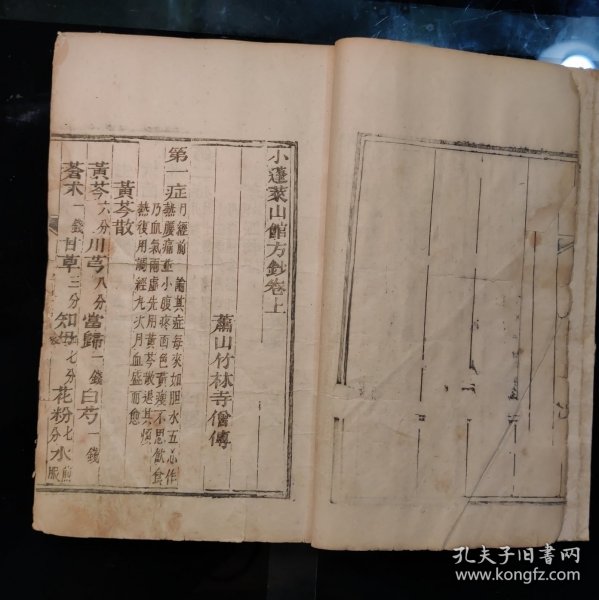 小蓬萊山館方鈔卷上
蕭山竹林寺僧傳
第一症 月經前 論其症每來如胆水五心作
熱腰痛並小腹疼面色黃瘦不思飲食
乃血氣兩虛先用黃芩散退其煩
熱後用調經丸次月血盛而愈
黃芩散
黃芩六分 川芎八分 當歸一錢 白芍一錢
蒼朮一錢 甘草三分 知母七分 花粉七分 水煎服
孔夫子旧书网
www.kongfz.com